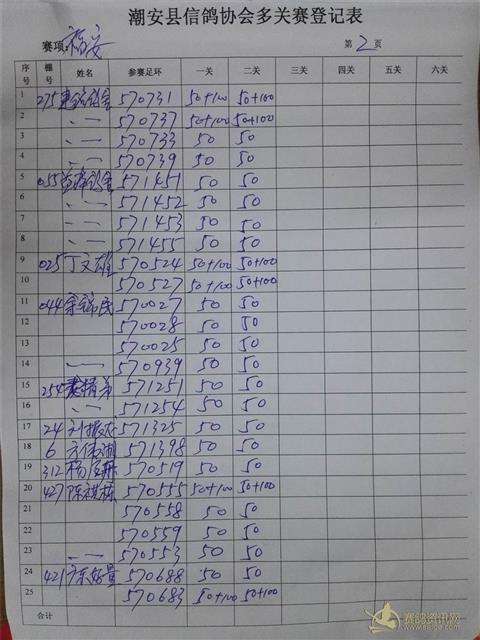 潮安县信鸽协会多关赛登记表
赛项: 福安 第2页
序号 棚号 姓名 参赛足环 一关 二关 三关 四关 五关 六关
1 275 鸽舍 570731 50+100 50+100
2 〃 — 570737 50+100 50+100
3 〃 — 570733 50 50
4 〃 — 570739 50 50
5 055 鸽舍 571451 50 50
6 〃 — 571452 50 50
7 〃 — 571453 50 50
8 〃 — 571455 50 50
9 025 丁文雄 570524 50+100 50+100
10 570527 50+100 50+100
11 044 锦民 570027 50 50
12 570028 50 50
13 570025 50 50
14 〃 — 570939 50 50
15 254 571251 50 50
16 〃 — 571254 50 50
17 24 571325 50 50
18 6 方伟湖 571398 50 50
19 312 杨 570519 50 50
20 427 陈祺栋 570555 50+100 50+100
21 570558 50 50
22 570559 50 50
23 〃 — 570553 50 50
24 421 570688 50 50
25 570683 50+100 50+100
合计
赛鸽资讯网